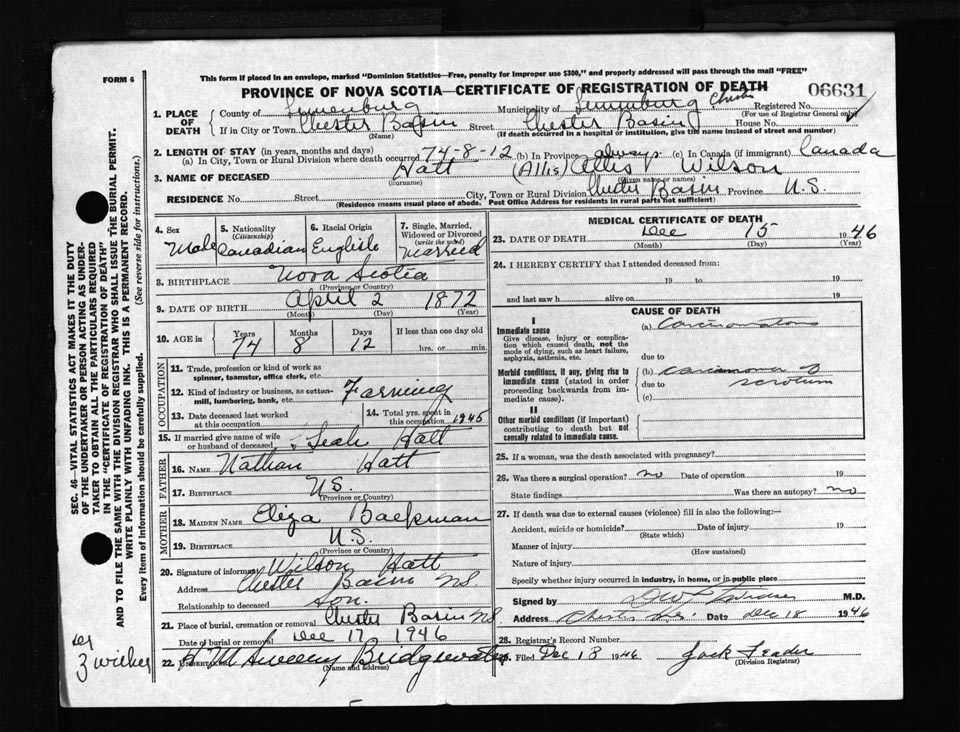 FORM 6
This form if placed in an envelope, marked "Dominion Statistics—Free, penalty for improper use $300," and properly addressed will pass through the mail "FREE"
PROVINCE OF NOVA SCOTIA—CERTIFICATE OF REGISTRATION OF DEATH
06631
1. PLACE OF DEATH
County of Lunenburg Municipality of Lunenburg Chester Registered No.
(For use of Registrar General only)
If in City or Town Chester Basin Street Chester Basin House No.
(Name) (If death occurred in a hospital or institution, give the name instead of street and number)
2. LENGTH OF STAY (in years, months and days)
(a) In City, Town or Rural Division where death occurred 74-8-12 (b) In Province always (c) In Canada (if immigrant) Canada
3. NAME OF DECEASED Hatt (Allis) Allis Wilson
(Surname) (Given name or names)
RESIDENCE No. Street City, Town or Rural Division Chester Basin Province N.S.
(Residence means usual place of abode. Post Office Address for residents in rural parts not sufficient)
4. Sex Male
5. Nationality (Citizenship) Canadian
6. Racial Origin English
7. Single, Married, Widowed or Divorced (write the word) Married
8. BIRTHPLACE Nova Scotia
(Province or Country)
9. DATE OF BIRTH April 2 1872
(Month) (Day) (Year)
10. AGE in Years 74 Months 8 Days 12 If less than one day old hrs. or min.
OCCUPATION
11. Trade, profession or kind of work as spinner, teamster, office clerk, etc.
12. Kind of industry or business, as cotton-mill, lumbering, bank, etc. Farming
13. Date deceased last worked at this occupation
14. Total yrs. spent in this occupation 1945
15. If married give name of wife or husband of deceased Leah Hatt
FATHER
16. NAME Nathan Hatt
17. BIRTHPLACE N.S.
(Province or Country)
MOTHER
18. MAIDEN NAME Eliza Backman
19. BIRTHPLACE N.S.
(Province or Country)
20. Signature of informant Wilson Hatt
Address Chester Basin N.S.
Relationship to deceased Son.
21. Place of burial, cremation or removal Chester Basin N.S.
Date of burial or removal Dec 17 1946
22. UNDERTAKER Sweeny Bridgewater
(Name and address)
MEDICAL CERTIFICATE OF DEATH
23. DATE OF DEATH Dec 15 1946
(Month) (Day) (Year)
24. I HEREBY CERTIFY that I attended deceased from:
19 to 19
and last saw h alive on 19
CAUSE OF DEATH
I
Immediate cause
Give disease, injury or complication which caused death, not the mode of dying, such as heart failure, asphyxia, asthenia, etc.
(a) Carcinomatous
due to
Morbid conditions, if any, giving rise to immediate cause (stated in order proceeding backwards from immediate cause).
(b) Carcinoma
due to scrotum
(c)
II
Other morbid conditions (if important) contributing to death but not causally related to immediate cause.
25. If a woman, was the death associated with pregnancy?
26. Was there a surgical operation? no Date of operation 19
State findings Was there an autopsy? no
27. If death was due to external causes (violence) fill in also the following:—
Accident, suicide or homicide? Date of injury 19
(State which)
Manner of injury
(How sustained)
Nature of injury
Specify whether injury occurred in industry, in home, or in public place
Signed by M.D.
Address Chester N.S. Date Dec 18 1946
28. Registrar's Record Number
29. Filed Dec 18 1946 Jack Feader
(Division Registrar)
SEC. 46—VITAL STATISTICS ACT MAKES IT THE DUTY
OF THE UNDERTAKER OR PERSON ACTING AS UNDERTAKER
TO OBTAIN ALL THE PARTICULARS REQUIRED
IN THE "CERTIFICATE OF REGISTRATION OF DEATH"
AND TO FILE THE SAME WITH THE DIVISION REGISTRAR WHO SHALL ISSUE THE BURIAL PERMIT.
WRITE PLAINLY WITH UNFADING INK. THIS IS A PERMANENT RECORD.
Every item of information should be carefully supplied. (See reverse side for instructions.)
Zwicker